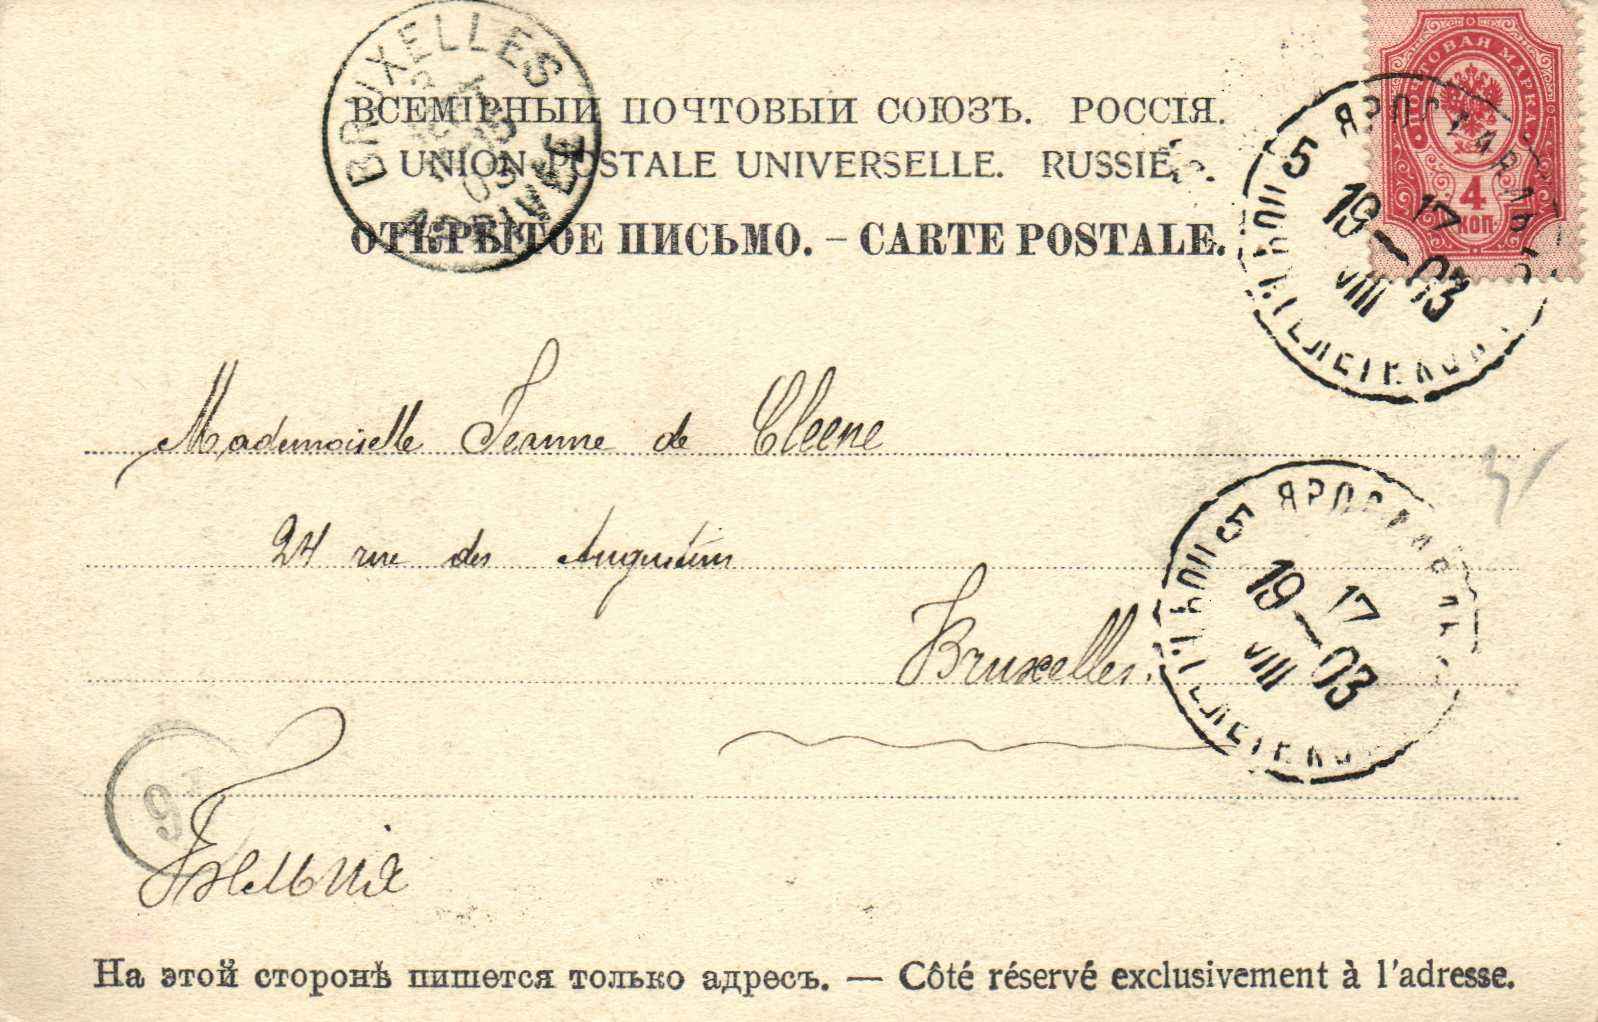 ПОЧТОВАЯ МАРКА
4
КОП
BRUXELLES
ARRIVÉE
ВСЕМІРНЫЙ ПОЧТОВЫЙ СОЮЗЪ. РОССІЯ.
UNION POSTALE UNIVERSELLE. RUSSIE.
ОТКРЫТОЕ ПИСЬМО. – CARTE POSTALE.
5 ЯРОСЛАВЛЬ 5
17
19—03
VIII
Mademoiselle Jeanne de Cleene
24 rue des Augustins
Bruxelles.
5 ЯРОСЛАВЛЬ
17
19—03
VIII
9
Бельгія
На этой сторонѣ пишется только адресъ. — Côté réservé exclusivement à l'adresse.